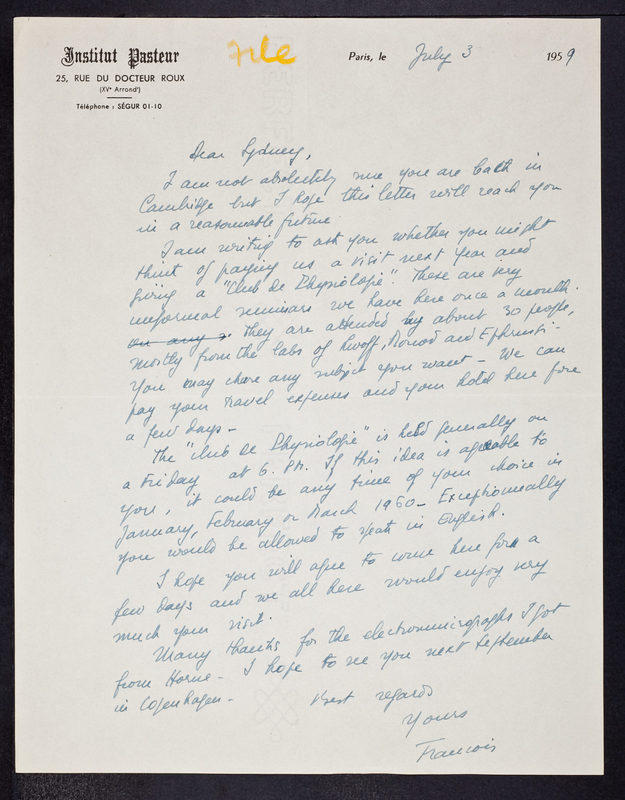 Institut Pasteur
25, RUE DU DOCTEUR ROUX
(XVᵉ Arrondᵗ)
Téléphone : SÉGUR 01-10
File
Paris, le July 3 1959
Dear Sydney,
I am not absolutely sure you are back in
Cambridge but I hope this letter will reach you
in a reasonnable future.
I am writing to ask you whether you might
think of paying us a visit next year and
giving a "Club de Physiologie". These are very
informal seminars we have here once a month.
on any They are attended by about 30 people,
mostly from the labs of Lwoff, Monod and Ephrussi-
You may chose any subject you want - We can
pay your travel expenses and your hotel here for
a few days -
The "Club de Physiologie" is held generally on
a Friday at 6. PM. If this idea is agreable to
you, it could be any time of your choice in
January, February or March 1960 - Exceptionnally
you would be allowed to speak in English.
I hope you will agree to come here for a
few days and we all here would enjoy very
much your visit.
Many thanks for the electronmicrographs I got
from Horne - I hope to see you next September
in Copenhagen -
Best regards
Yours
Francois